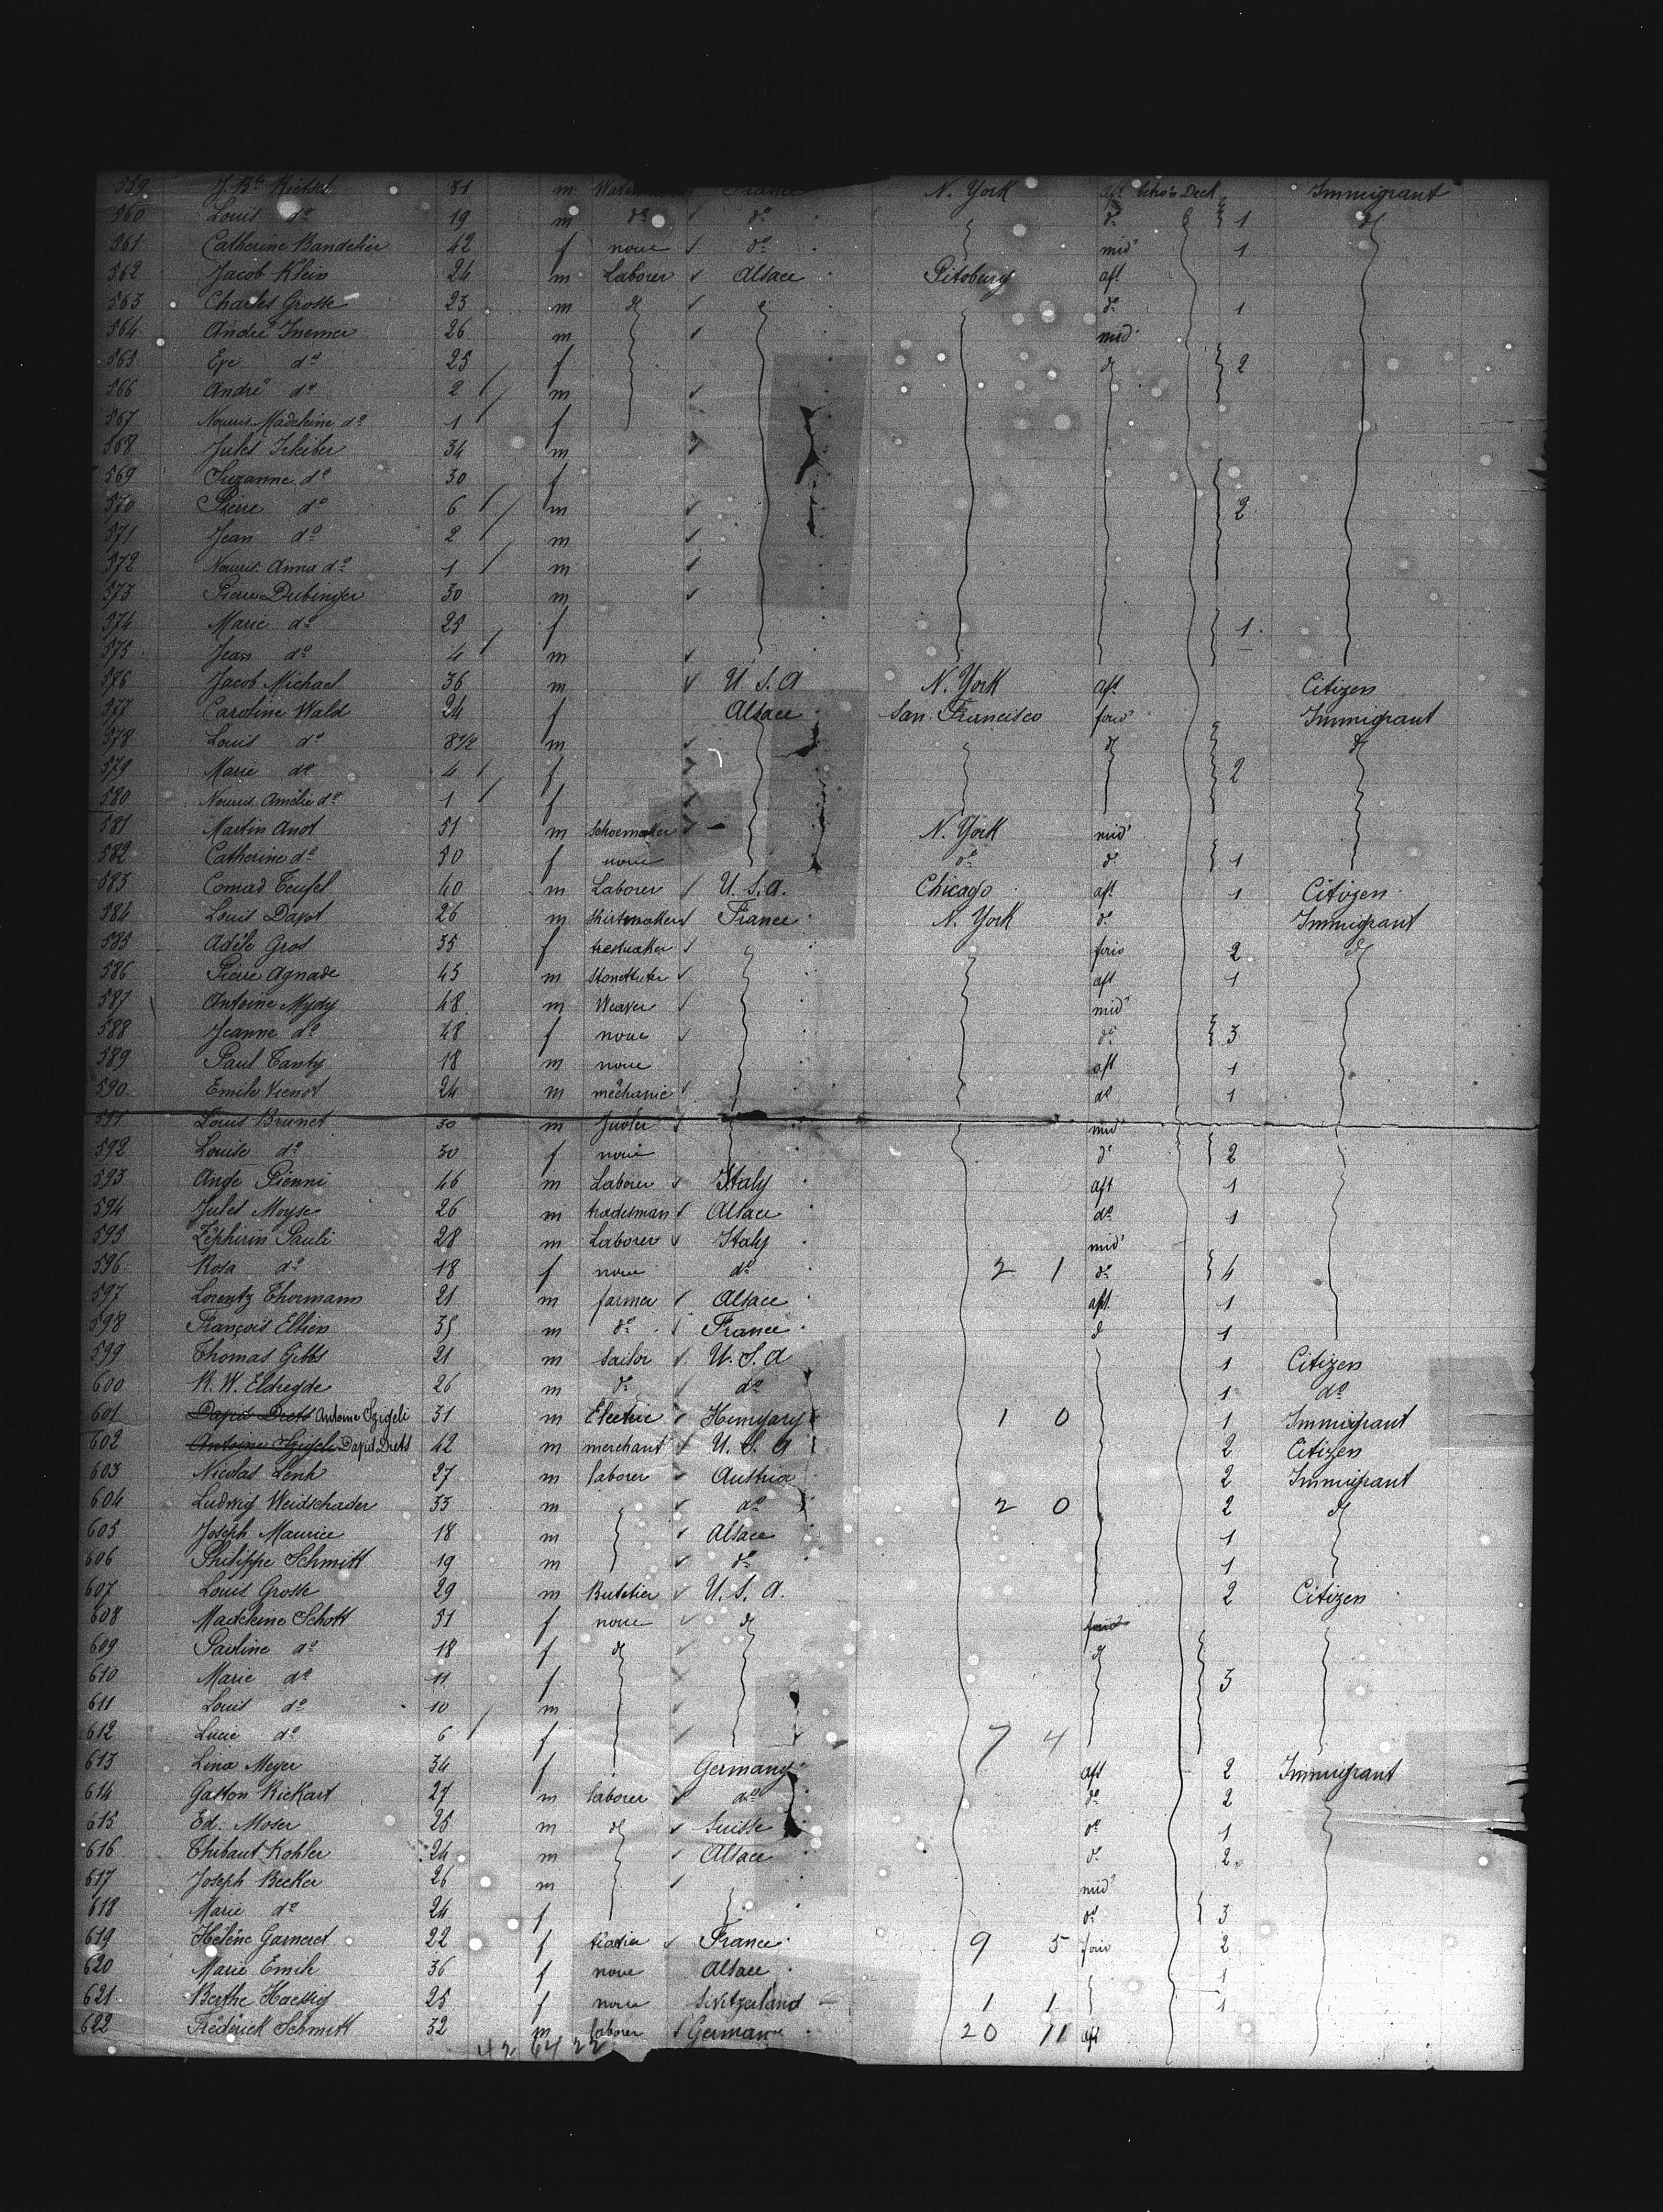 559 J. Bte Rietsch 31 m France N. York aft Betw'n Deck Immigrant
560 Louis do 19 m do do do 1 do
561 Catherine Bandelier 42 f none do mid 1
562 Jacob Klein 24 m Laborer Alsace Pitsburg aft
563 Charles Grosse 23 m do do 1
564 André Inemer 26 m mid
565 Eve do 25 f do 2
566 André do 2 m
567 Nourris. Madeleine do 1 f
568 Jules 34 m
569 Suzanne do 30 f
570 Pierre do 6 m 2
571 Jean do 2 m
572 Nourris. Anna do 1 m
573 Pierre Dubinger 30 m
574 Marie do 25 f 1
575 Jean do 4 m
576 Jacob Michael 36 m U. S. A N. York aft Citizen
577 Caroline Wald 24 f Alsace San Francisco forw Immigrant
578 Louis do 8 1/2 m do do
579 Marie do 4 f 2
580 Nourris Amélie do 1 f
581 Martin Anot 51 m Schoemaker N. York mid
582 Catherine do 50 f none do do 1
583 Conrad Teufel 40 m Laborer U. S. A. Chicago aft 1 Citizen
584 Louis Davot 26 m Shirtmaker France N. York do Immigrant
585 Adèle Gros 35 f forw 2 do
586 Pierre Agnade 43 m Stonekuter aft 1
587 Antoine Mydy 48 m Weaver mid
588 Jeanne do 48 f none do 3
589 Paul Tanty 18 m none aft 1
590 Emile Vienot 24 m mechanic do 1
591 Louis Brunet 30 m Juvler mid
592 Louise do 30 f none do 2
593 Ange Pienni 46 m Laborer Italy aft 1
594 Jules Moyse 26 m tradesman Alsace do 1
595 Zéphirin Pauli 28 m Laborer Italy mid
596 Rosa do 18 f none do 2 1 do 4
597 Lorentz Thormann 21 m farmer Alsace aft 1
598 François Ellien 35 m do France do 1
599 Thomas Gibbs 21 m Sailor U. S. A 1 Citizen
600 R. W. Eldregde 26 m do do 1 do
601 David Drets Antoine Szigeli 31 m Electric Hungary 1 0 1 Immigrant
602 Antoine Szigeli David Drets 42 m merchant U. S. A 2 Citizen
603 Nicolas Lenk 27 m laborer Austria 2 Immigrant
604 Ludwig Weidschader 33 m do 2 0 2 do
605 Joseph Maurice 18 m Alsace 1
606 Philippe Schmitt 19 m do 1
607 Louis Grosse 29 m Butcher U. S. A. 2 Citizen
608 Madeleine Schott 51 f none do
609 Pauline do 18 f do do
610 Marie do 11 f 3
611 Louis do 10 m
612 Lucie do 6 f 7 4
613 Lina Meyer 34 f Germany aft 2 Immigrant
614 Gaston Rickart 27 m laborer do do 2
615 Ed. Moser 25 m do Suisse do 1
616 Thibaut Kohler 24 m Alsace do 2
617 Joseph Becker 26 m mid
618 Marie do 24 f do 3
619 Hélène Garneret 22 f France 9 5 forw 2
620 Marie Emile 36 f none Alsace 1
621 Berthe Haessig 25 f none Switzerland 1 1 1
622 Frédérick Schmitt 32 m laborer German 20 11 aft
42 64 22